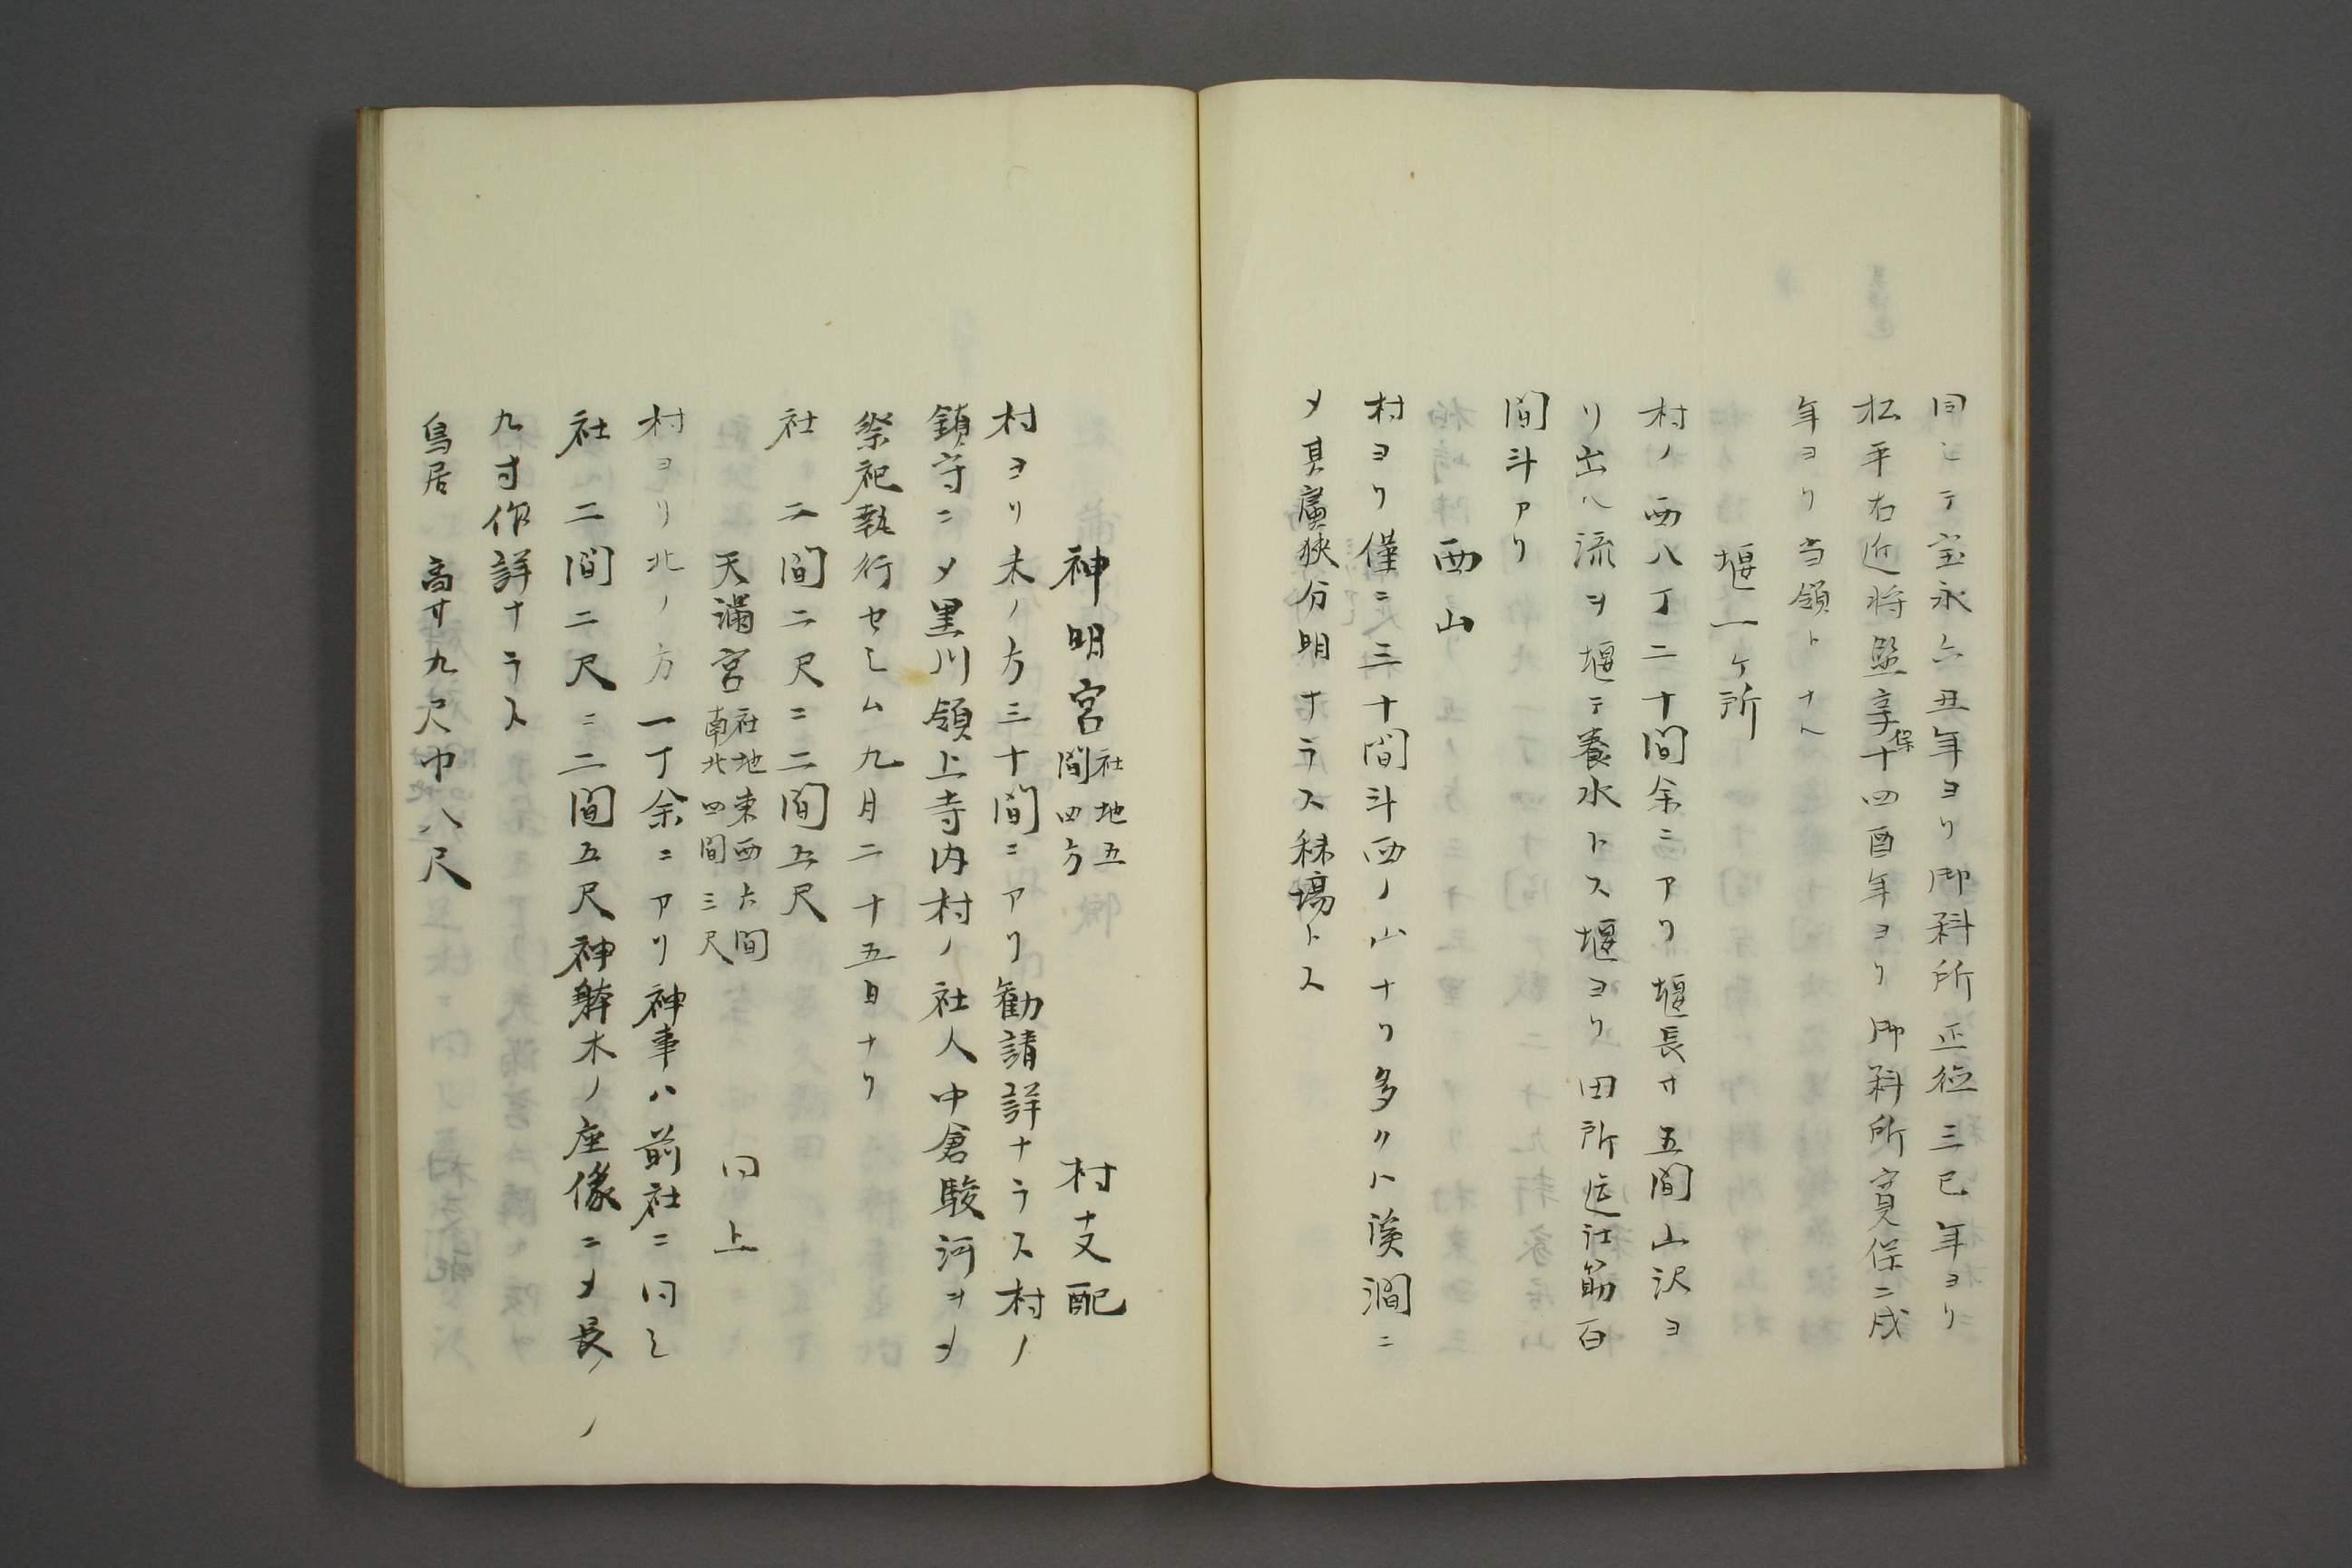 同シテ宝永六丑年ヨリ御料所正徳三巳年ヨリ
松平右近将監享保十四酉年ヨリ御料所寛保二戌
年ヨリ当領トナル
堰一ケ所
村ノ西八丁二十間余ニアリ堰長サ五間山沢ヨ
リ出ル流ヲ堰テ養水トス堰ヨリ田所迄江筋百
間斗アリ
西山
村ヨリ僅ニ三十間斗西ノ山ナリ多クハ渓澗ニ
メ其廣狭分明ナラス秣場トス
神明宮 社地五間四方 村支配
村ヨリ未ノ方三十間ニアリ勧請詳ナラス村ノ
鎮守ニメ黒川領上寺内村ノ社人中倉駿河ヲメ
祭祀執行セシム九月二十五日ナリ
社 二間二尺ニ二間五尺
天満宮 社地東西六間南北四間三尺 同上
村ヨリ北ノ方一丁余ニアリ神事ハ前社ニ同シ
社 二間二尺ニ二間五尺神躰木ノ座像ニメ長ノ
九寸作詳ナラス
鳥居 高サ九尺巾八尺